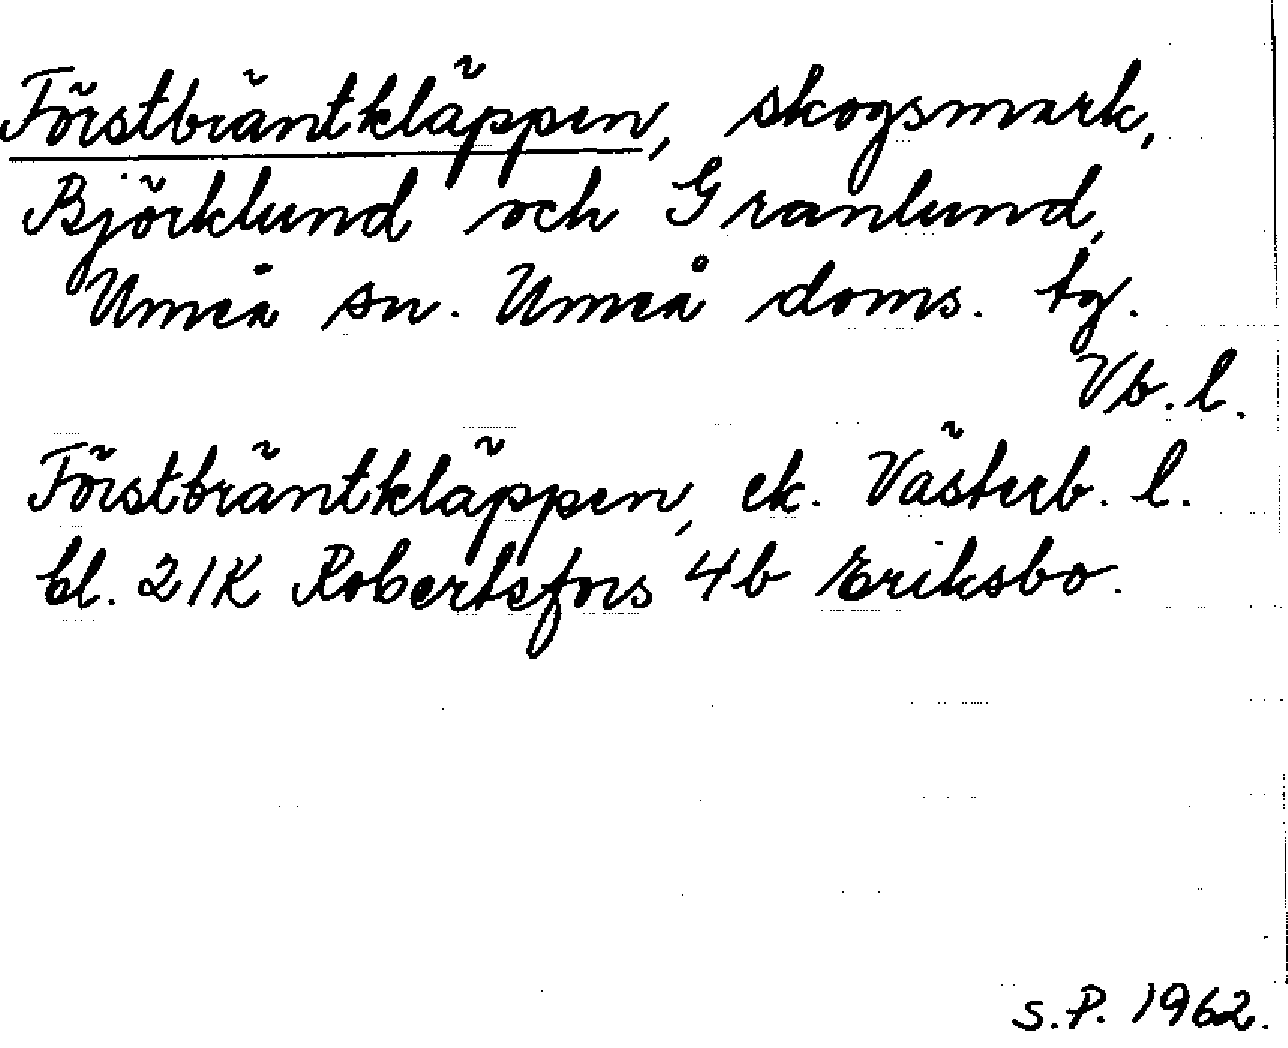 Förstbräntkläppen, skogsmark,
Björklund och Granlund,
Umeå sn. Umeå doms. tg.
Vb. l.
Förstbräntkläppen, ek. Västerb. l.
bl. 21K Robertsfors 4b Eriksbo.
S.P. 1962.